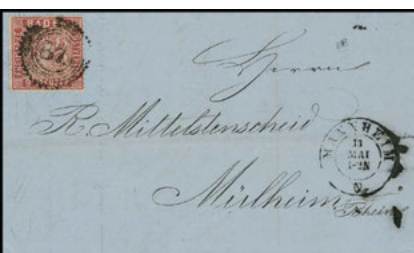 BADEN
87
Herrn
R. Mittelstenscheid
MANNHEIM
11
MAI
Mülheim
Rhein